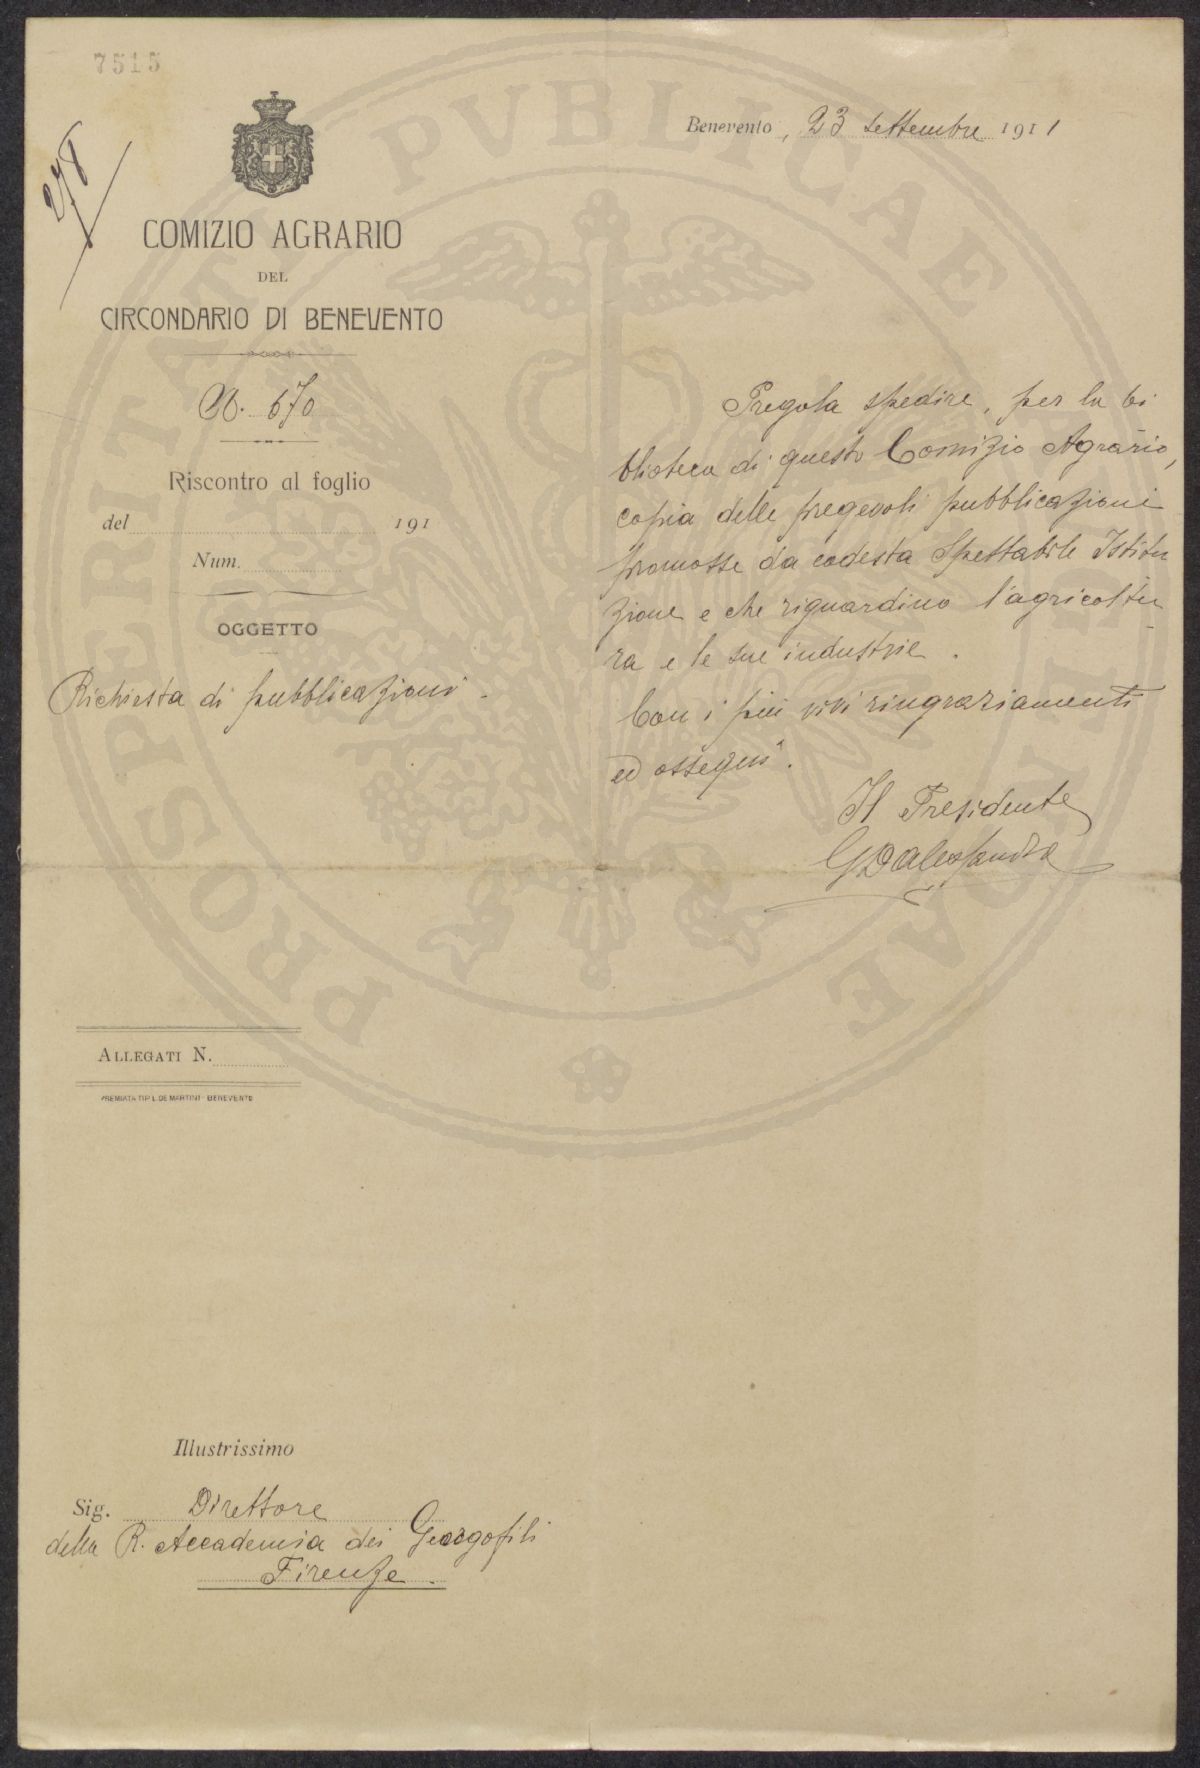 7515
278
Benevento, 23 settembre 1911
COMIZIO AGRARIO
DEL
CIRCONDARIO DI BENEVENTO
N. 670
Riscontro al foglio
del 191
Num.
OGGETTO
Richiesta di pubblicazioni.
Pregola spedire, per la bi
blioteca di questo Comizio Agrario,
copia delle pregevoli pubblicazioni
promosse da codesta Spettabile Istitu
zione e che riguardino l'agricoltu
ra e le sue industrie.
Con i più vivi ringraziamenti
ed ossequi.
Il Presidente
G D'Alessandro
ALLEGATI N.
PREMIATA TIP. L. DE MARTINI - BENEVENTO
Illustrissimo
Sig. Direttore
della R. Accademia dei Georgofili
Firenze.
PROSPERITATI PVBLICAE